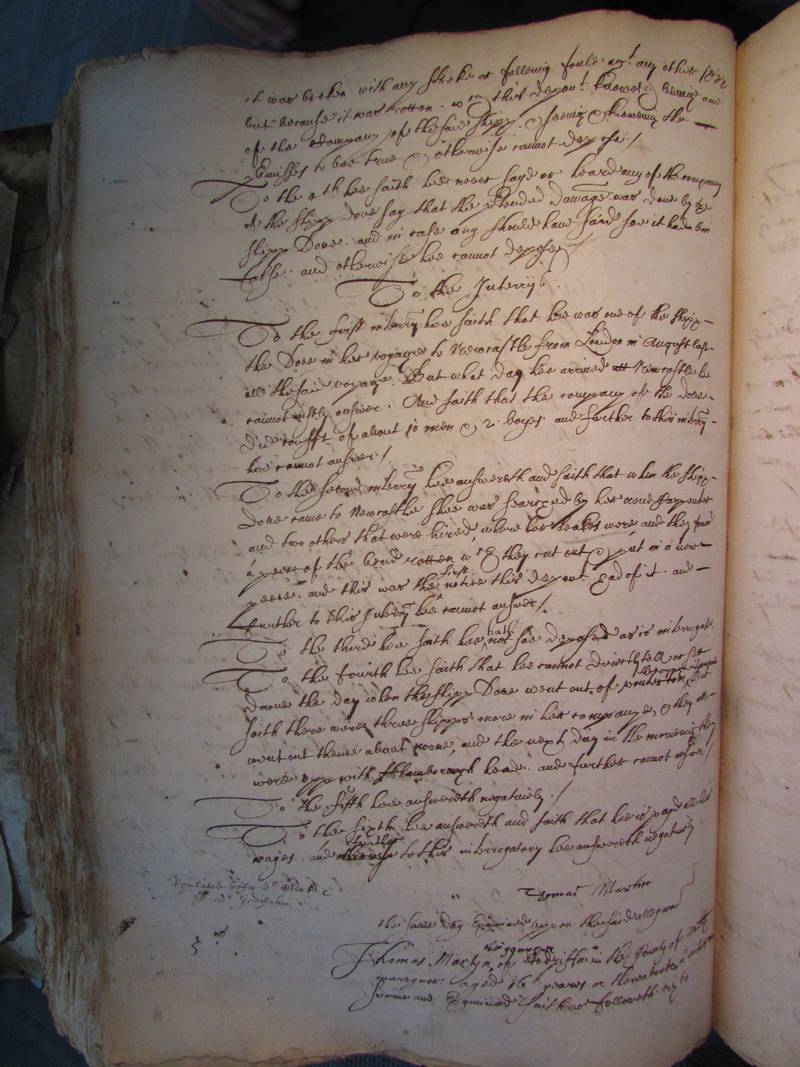 it was broken with any stroke or falleing foule agt any other shipp
but because it was rotten. wch this depont knoweth being one
of the Company of the said shipp. & seeing & knoweing the
premisses to bee true & otherwise cannot depose./
To the 4th hee saith hee never sayd or heard any of the company
of the shipp Dove say that the ptended damage was done by the
shipp Dove. and in case any should have said soe it had ben
false. and otherwise hee cannot depose/
To the Interryes.
To the first interry hee saith that hee was one of the shipp
the Dove in her voyage to Newcastle from London in August last
all the said voyage. But what day hee arrived att Newcastle he
cannot justly answer. And saith that the company of the Dove
did consist of about 10 men & 2. boyes. and further to this interry
hee cannot answer./
To the second interry hee answereth and saith that when the shipp
Dove came to Newcastle shee was searched by her owne Carpenter
and two others that were hired, where her leakes were, and they found
a peece of the bend rotten wch they cut out & put in a new
peece. and this was the first notice this depont had of it. and
further to this Interry hee cannot answer/.
To the third hee saith hee hath not soe deposed as is interrogate
To the fourth hee saith that hee cannot directly tell or sett
downe the day when the shipp Dove went out of
saith there were three shipps more in her companye, & they all
went out thence about noone, and the next day in the morneing they
were upp with Flamborough head. and further cannot answer/
To the fifth hee answereth negatively./
To the sixth hee answereth and saith that hee is payd all his
wages. and further to this interrogatory hee answereth negatively
Thomas Martin
Repetatur coram
Godolphin
the same day Examined upon the said allegation
Thomas Martyn of in the County of
marryner aged 16 yeares or thereabouts a witnes
sworne and Examined saith as followeth. vizt